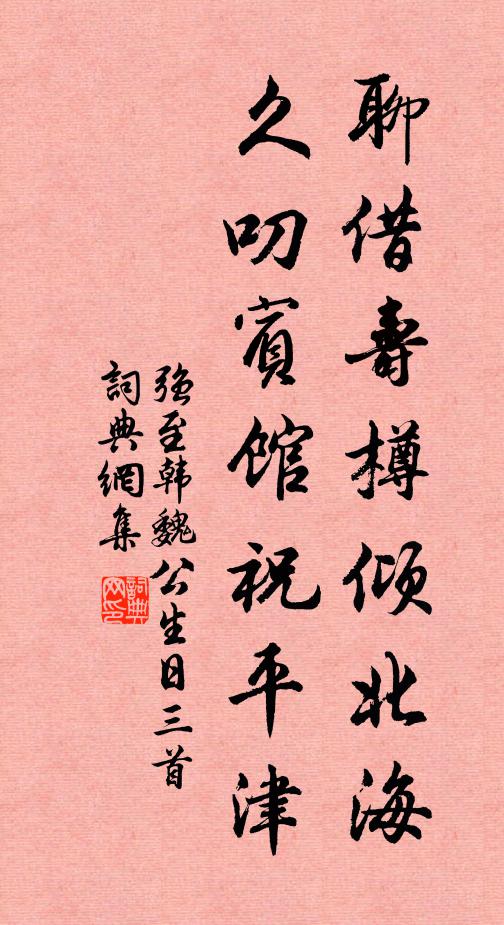 聊借壽樽傾北海
久叨賓館祝平津
強至韩魏公生日三首
詞典網集
詞典網印